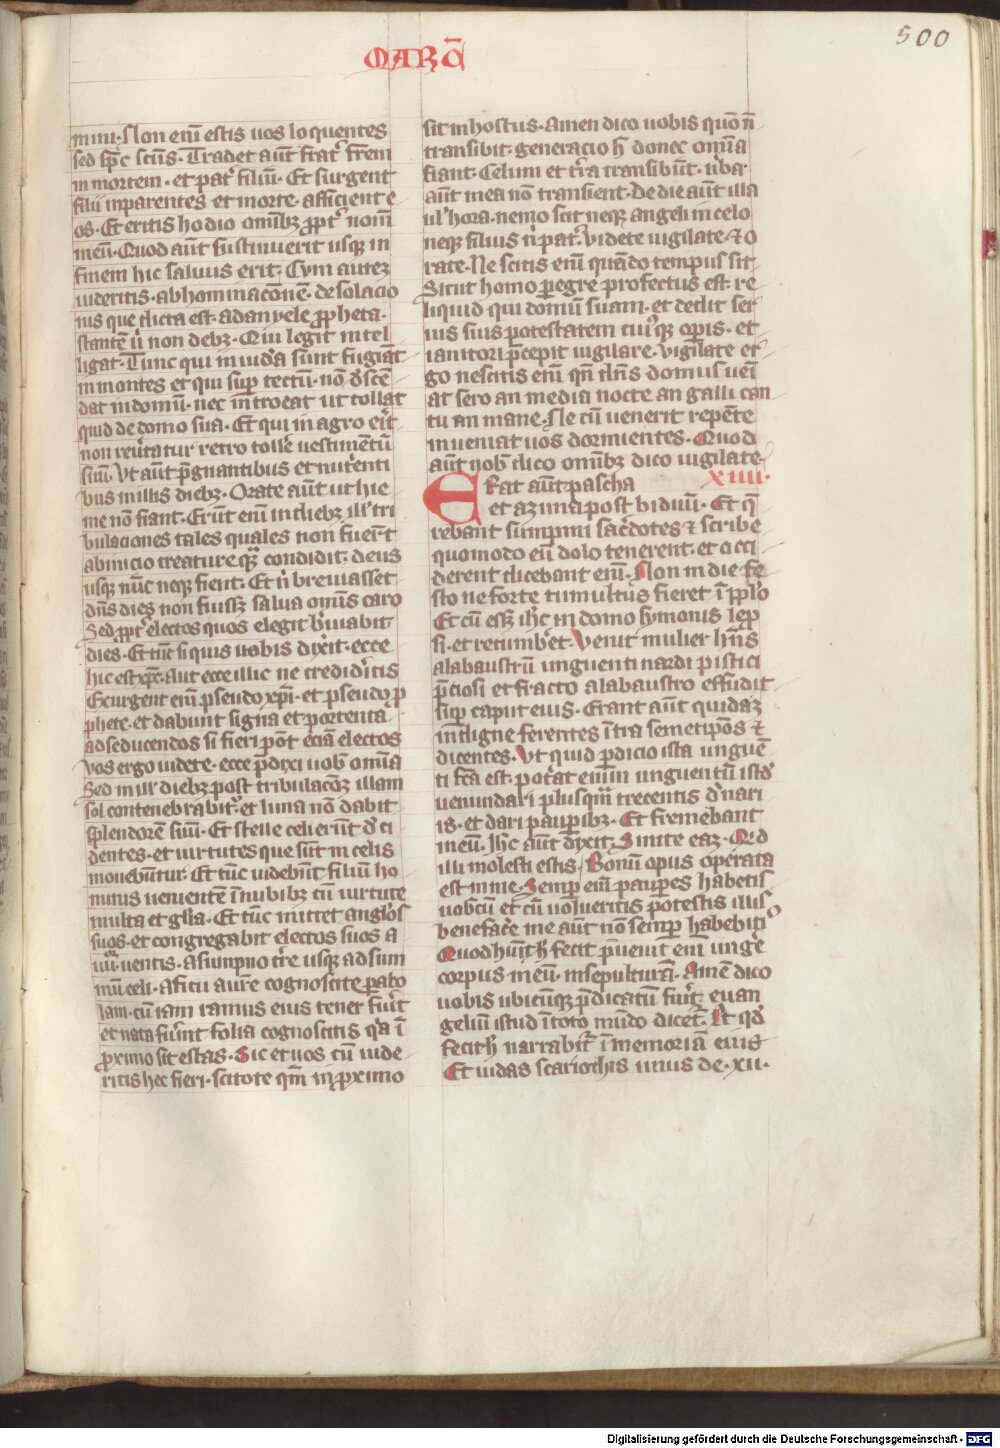 500
MARCꝰ
mini · Non enī estis uos loquentes
sed sp̄c sctūs · Tradet aūt frat̉ fr̄em
in mortem · et pat̉ filiū · Et surgent
filii inparentes et morte afficient e
os · Et eritis hodio om̄ibꝫ ꝓpt̉ nom̄
meū · Quod aūt sustinuerit usqꝫ in
finem hic saluus erit · Cym auteꝫ
uideritis · abhominacōnē · desolacio
nis que dicta est · adanyele ꝓpheta ·
stantē ů non debꝫ · Qui legit intel
ligat · Tunc qui in iud̉a sunt fugiāt
in montes et qui suꝑ tectū · nō d̉scē
dat indomū · nec introeat ut tollat
quid de domo sua · Et qui in agro er̄t
non reůtatur retro tolle uestimētū
suū · Ut aūt p̄gnantibus et nut̉enti
bus in illis diebꝫ · Orate aūt ut hie
me nō fiant · Er̄ut enī in diebꝫ ill̉ tri
bulaciones tales quales non fuer̄t
abinicio creature qꝫ condidit · deus
usqꝫ nūc neqꝫ fient · Et n̉ breuiasset
dn̄s dies non fuissꝫ salua omīs caro
Sed ꝓpt̉ electos quos elegit b̉uiabit
dies · Et tūc si quis uobis dixit · ecce
hic est xp̄c · Aut ecce illic ne credid̉itis
Exurgent enī pseudo xp̄i · et pseudo ꝓ
phete · et dabunt signa et portenta
adseducendos si fieri pōt eciā electos
Vos ergo uidete · ecce p̄dixi uob̉ omīa
Sed in ill̉ diebꝫ post tribulacōeꝫ illam
sol contenebrabit̉ · et luna nō dabit
splendorē suū · Et stelle celi er̄ut d̉ci
dentes · et uirtutes que sūt in celis
mouebūtur · Et tūc uidebūt filiū ho
minis uenientē ī nubibꝫ cū uirtute
multa et gl̄ia · Et tūc mittet anglōs
suos · et congregabit electos suos a
iiii · uentis · asumpno t̉re usqꝫ ad sum
mū celi · A ficu aut̄e cognoscite ꝑabo
lam · cū iam ramus eius tener fủit
et nata fủint folia cognoscitis q̉a ī
ꝓximo sit estas · Sic et uos cū uide
ritis hec fieri · scitote qm̄ in ꝓximo
sit in hostiis · Amen dico uobis quōn̄
transibit · generacio h̄ donec omīa
fiant · Celum et t̉ra transibūt · ủba
aūt mea nō transient · De die aūt illa
ul̉ hora · nemo scit neqꝫ angeli in celo
neqꝫ filius n̉ pat̉ · Videte uigilate · ⁊ o
rate · Ne scitis enī quādo tempus sit
Sicut homo ꝑegre profectus est · re
liquid qui domū suam · et dedit ser
uis suis potestatem cuỉqꝫ opis · et
ianitori p̄cepit uigilare · Vigilate er
go nescitis enī qn̄ dn̄s domus uēi
at sero an media nocte an galli can
tu an mane · Ne cū uenerit repēte
inueniat uos dormientes · Quod
aūt uob̉ dico omībꝫ dico uigilate ·
XIIII ·
ERat aūt pascha
et azima post biduū · Et q̄
rebant summi sac̉dotes ⁊ scribe
quomodo eū dolo tenerent · et occi
derent dicebant enī · Non in die fe
sto ne forte tumultus fieret ī pp̄lo
Et cū essꝫ ih̄c in domo symonis lep̄
si · et recumb̉et · Venit mulier hn̄s
alabaustrū unguenti nardi pistici
p̄ciosi et fracto alabaustro effudit
suꝑ caput eius · Erant aūt quidaꝫ
indigne ferentes īntra semetip̄os ⁊
dicentes · Ut quid ꝑdicio ista unguē
ti fc̄a est · pot̉at enim unguentū istd̉
uenundari plusqm̄ trecentis d̉nari
is · et dari pauꝑibꝫ · Et fremebant
in eū · Ih̄c aūt dixit · Sinite eaꝫ · Qd̉
illi molesti estis · Bonū opus operata
est in me · Semꝑ enī pauꝑes habetis
uob̉cū et cū uolueritis potestis illis
benefac̉e me aūt nō semꝑ habebitꝰ
Quod hūit h̄ fecit p̄uenit enī ung̉e
corpus meū · in sepulturā · Amē dico
uobis ubicūqꝫ p̄dicatū fủit euan
geliū istud ī toto mūdo dicet̉ · Et qd̉
fecit h̄ narrabit̉ ī memoriā eius
Et iudas scariothis unus de · xii ·
Digitalisierung gefördert durch die Deutsche Forschungsgemeinschaft - DFG